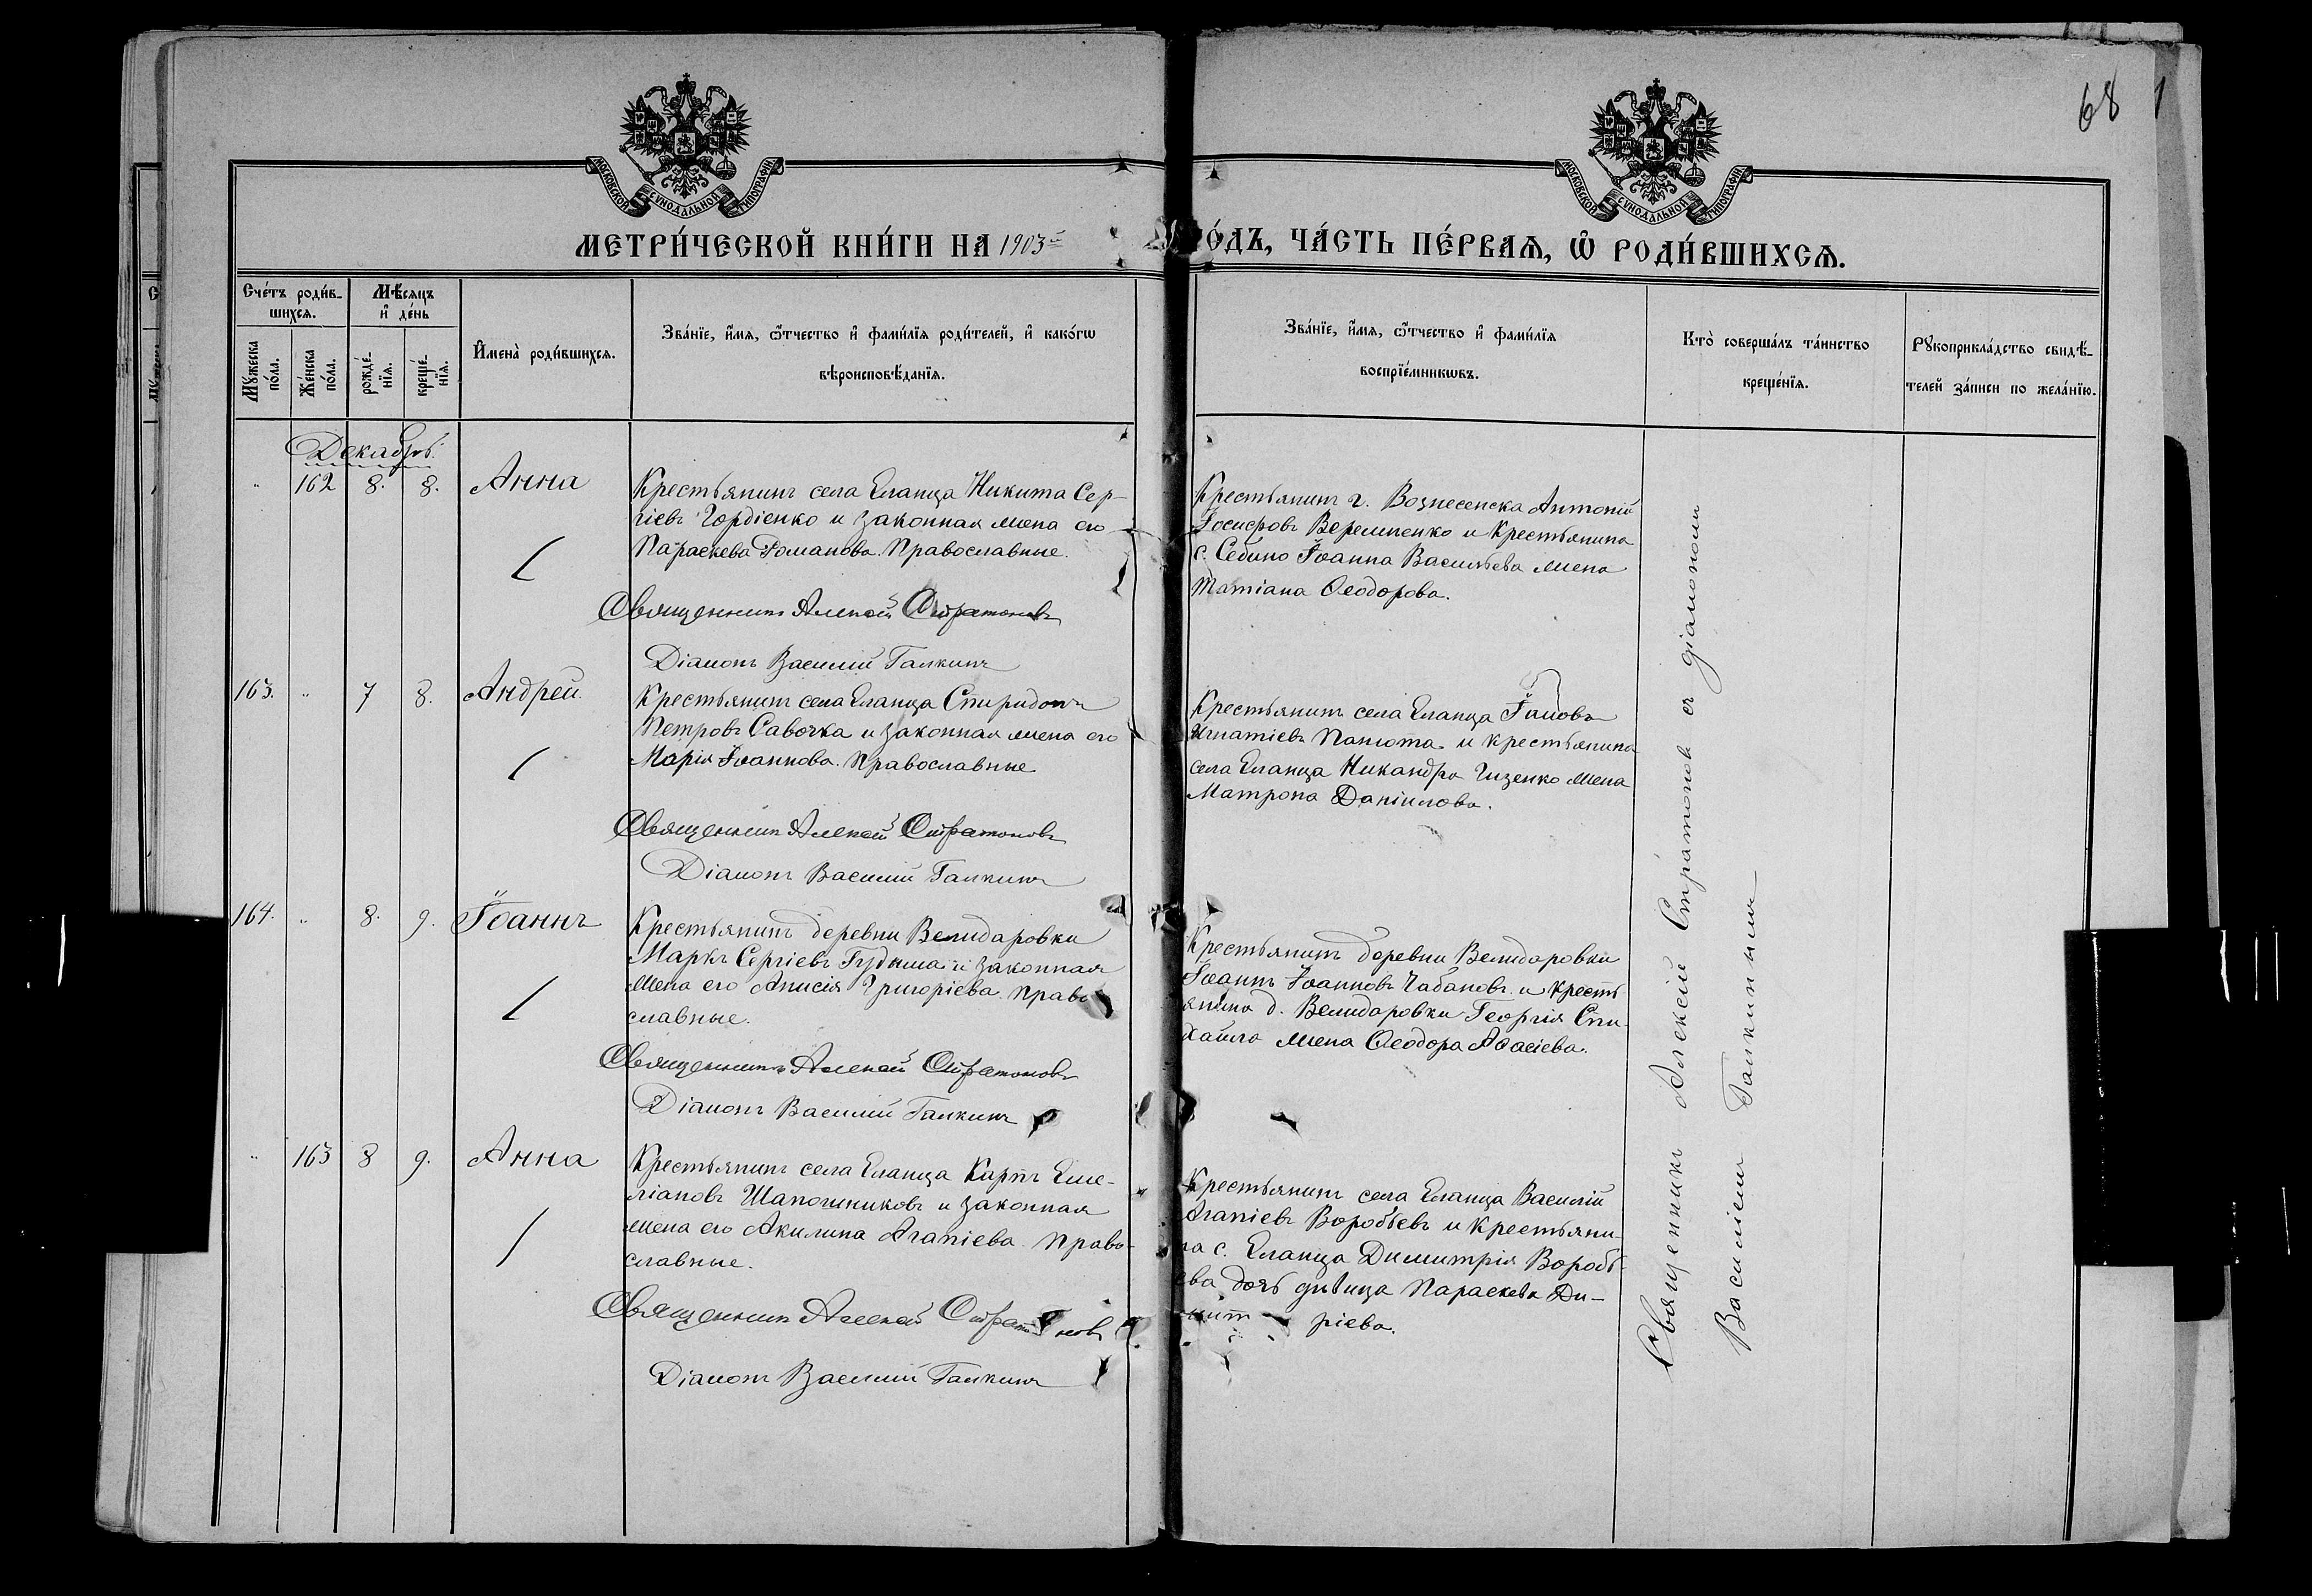 68
МОСКОВСКОЙ СѴНОДАЛЬНОЙ ТИПОГРАФІИ
МОСКОВСКОЙ СѴНОДАЛЬНОЙ ТИПОГРАФІИ
МЕТРИ́ЧЕСКОЙ КНИ́ГИ НА 1903й
О́ДЪ, ЧА́СТЬ ПЕ́РВАѦ, Ѡ РОДИ́ВШИХСѦ.
Сче́тъ роди́в-
шихсѧ.
Мѣ́сѧцъ
и҆ де́нь
Мꙋ́жеска
по́ла.
Же́нска
по́ла.
рожде́-
нїѧ.
креще́-
нїѧ.
И҆мена̀ роди́вшихсѧ.
Зва́нїе, и҆́мѧ, ѻ҆́тчество и҆ фами́лїѧ роди́телей, и҆ како́гѡ
вѣроисповѣ́данїѧ.
Зва́нїе, и҆́мѧ, ѻ҆́тчество и҆ фами́лїѧ
воспрїе́мникѡвъ.
Кто̀ соверша́лъ та́инство
креще́нїѧ.
Рꙋкоприкла́дство свидѣ́-
телей за́писи по жела́нїю.
Декабрь.
" 162 8. 8. Анна
Крестьянинъ села Еланца Никита Сер-
гіевъ Гордіенко и законная жена его
Параскева Романова. Православные.
Священникъ Алексій Стратоновъ
Діаконъ Василій Галкинъ
Крестьянинъ г. Вознесенска Антоній
Іосифовъ Веремѣенко и крестьянина
с. Себино Іоанна Васильева жена
Татіана Ѳеодорова.
163. " 7 8. Андрей
Крестьянинъ села Еланца Спиридонъ
Петровъ Савочка и законная жена его
Марія Іоаннова. Православные
Священникъ Алексій Стратоновъ
Діаконъ Василій Галкинъ
Крестьянинъ села Еланца Іаковъ
Игнатіевъ Панюта и крестьянина
села Еланца Никандра Гизенко жена
Матрона Даніилова.
164. " 8. 9. Іоаннъ
Крестьянинъ деревни Велидаровки
Маркъ Сергіевъ Гудыма и законная
жена его Анисія Григоріева. Право
славные.
Священникъ Алексій Стратоновъ
Діаконъ Василій Галкинъ
Крестьянинъ деревни Велидаровки
Іоаннъ Іоанновъ Чабановъ и кресть
янина д. Велидаровки Георгія Спи-
хайло жена Ѳеодора
" 163 8 9. Анна
Крестьянинъ села Еланца Карпъ Еме-
ліановъ Шапошниковъ и законная
жена его Акилина Агапіева. Право-
славные.
Священникъ Алексій Стратоновъ
Діаконъ Василій Галкинъ
Крестьянинъ села Еланца Василій
Агапіевъ Воробьевъ и крестьяни-
на с. Еланца Димитрія Воробь-
ева дочь дѣвица Параскева Ди-
мит ріева.
Священникъ Алексій Стратоновъ съ діакономъ
Василіемъ Галкинымъ